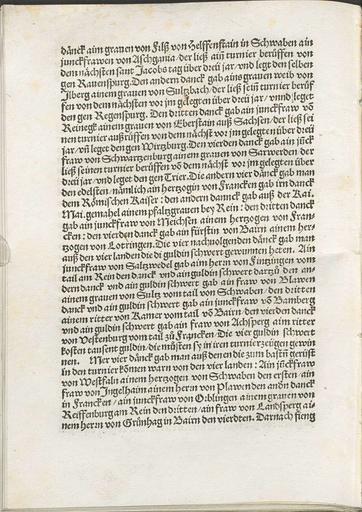 dänck aim grauen von Filß von Helffenstain in Schwaben ain
junckfrawen von Aschgania / der ließ ain turnier berüffen von
dem nächsten sant Jacobs tag über dreü jar / vnd legt den selben
gen Rauenspurg. Den andern danck gab ains grauen weib von
Jlberg ainem grauen von Sulzbach / der ließ sein turnier berüf
fen von dem nächsten vor jm gelegten über dreü jar / vnnd leget
den gen Regenspurg. Den dritten danck gab ain junckfraw võ
Reinegk ainem grauen von Eberstain auß Sachsen / der ließ sei
nen turnier außrüffen von dem nächst vor jm gelegten über dreü
jar / vñ leget den gen Wirtzburg. Den vierden danck gab ain jũck
fraw von Schwartzenburg ainem grauen von Sarwerden der
ließ seinen turnier berüffen võ dem nächst vor jm gelegten über
dreü jar / vnd leget den gen Trier. Die andern vier dänck gab man
den edelsten / nämlich ain hertzogin von Francken gab irn danck
dem Römischen Kaiser : den andern dannck gab auß der Kai.
Mai. gemahel ainem pfaltzgrauen bey Rein : den dritten danck
gab ain junckfraw von Meichsen ainem hertzogen von Fran-
cken : den vierden danck gab ain fürstin von Bairn ainem her-
tzogen von Lotringen. Die vier nachuolgenden dänck gab man
auß den vier landen die di guldin schwert gewunnen heten. Ain
junckfraw von Saltzwedel gab aim herrn von Finzingen vom
tail am Rein den danck vnd ain guldin schwert dartzü den an-
dern danck vnd ain guldin schwert gab ain fraw von Blawen
ainem grauen von Sultz vom tail von Schwaben / den dritten
danck vnd ain guldin schwert gab ain junckfraw võ Bamberg
ainem ritter von Kamer vom tail võ Bairn / den vierden danck
vnd ain guldin schwert gab ain fraw von Achsperg aim ritter
von Vestenburg vom tail zü Francken. Die vier guldin schwert
kosten tausent guldin. die müsten sy in iren turnierzeügen gewin
nen. Mer vier dänck gab man auß den en die zum bastñ gerüst
in den turnier komen warn von den vier landen : Ain jũckfraw
von Westfaln ainem hertzogen von Schwaben den ersten / ain
fraw von Jngelhaim ainem herrn von Plawen den andñ danck
in Francken / ain junckfraw von Orblingen ainem grauen von
Reiffenburg am Rein den dritten / ain fraw von Landsperg ai-
nem herrn von Grünhag in Bairn den vierdten. Darnach fieng